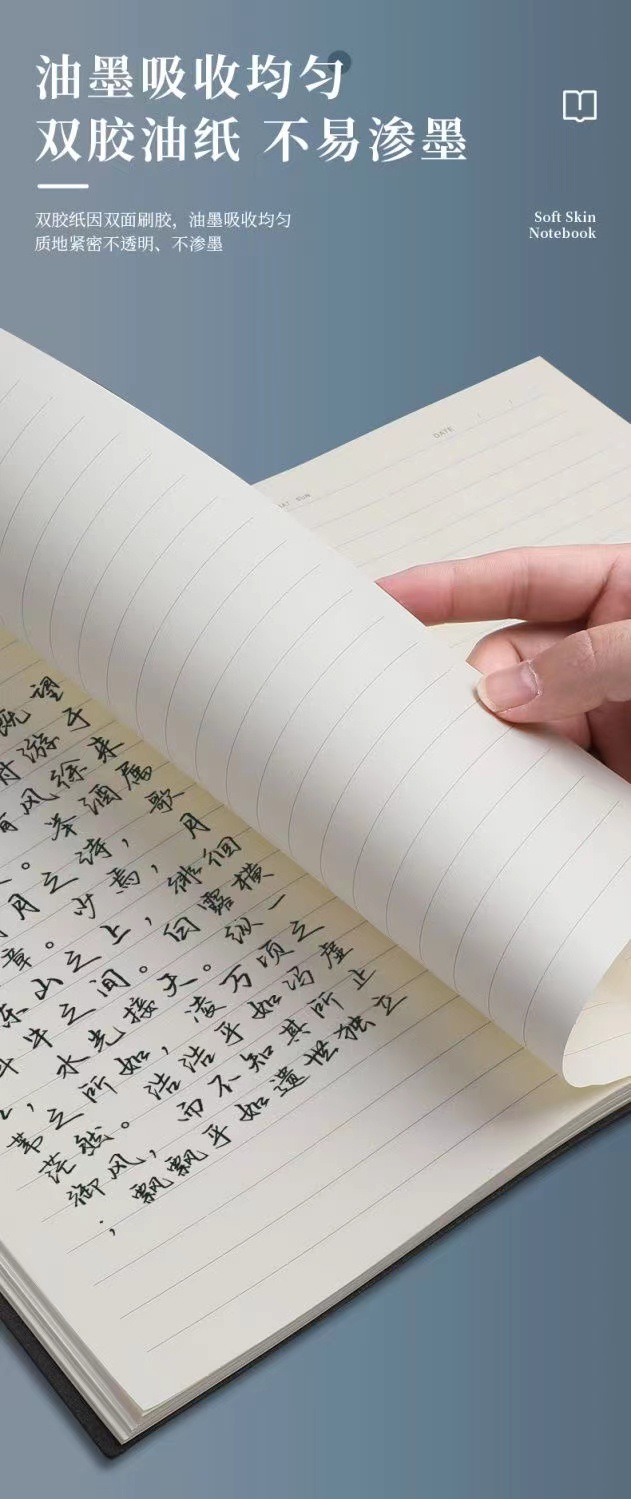 油墨吸收均匀
双胶油纸 不易渗墨
双胶纸因双面刷胶，油墨吸收均匀
质地紧密不透明、不渗墨
Soft Skin
Notebook
DATE / /
SUN
既望
游于
有风徐来
。举酒属
月之诗，歌
章。少焉，月
东山之上，徘徊
斗牛之间。白露横
，水光接天。纵一
苇之所如，凌万顷之
茫然。浩浩乎如冯虚
御风，而不知其所止
；飘飘乎如遗世独立